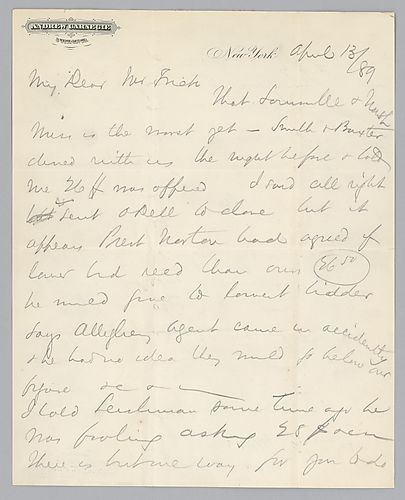 ANDREW CARNEGIE
New York April 13/
89
My Dear Mr Frick
That Louisville & Nash
Miss is the worst yet – Smith & Baxter
dined with us the night before & told
me 26 was offered I said all right
sent Odell to close but it
appears Prest Norton had agreed if
lower bid recd than ours 26 50
he would give to lowest bidder
says Allegheny agent came in accidentally
& he had no idea they would go below our
figure
I told Leishman some time ago he
was fooling asking 28
There is but one way for you to do